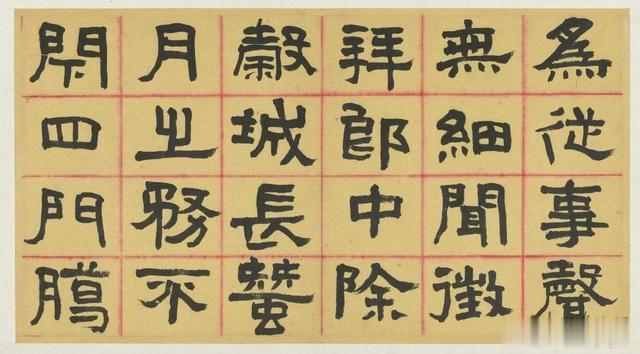 為從事聲
無細聞徵
拜郎中除
穀城長蠶
月之務不
閇四門臈